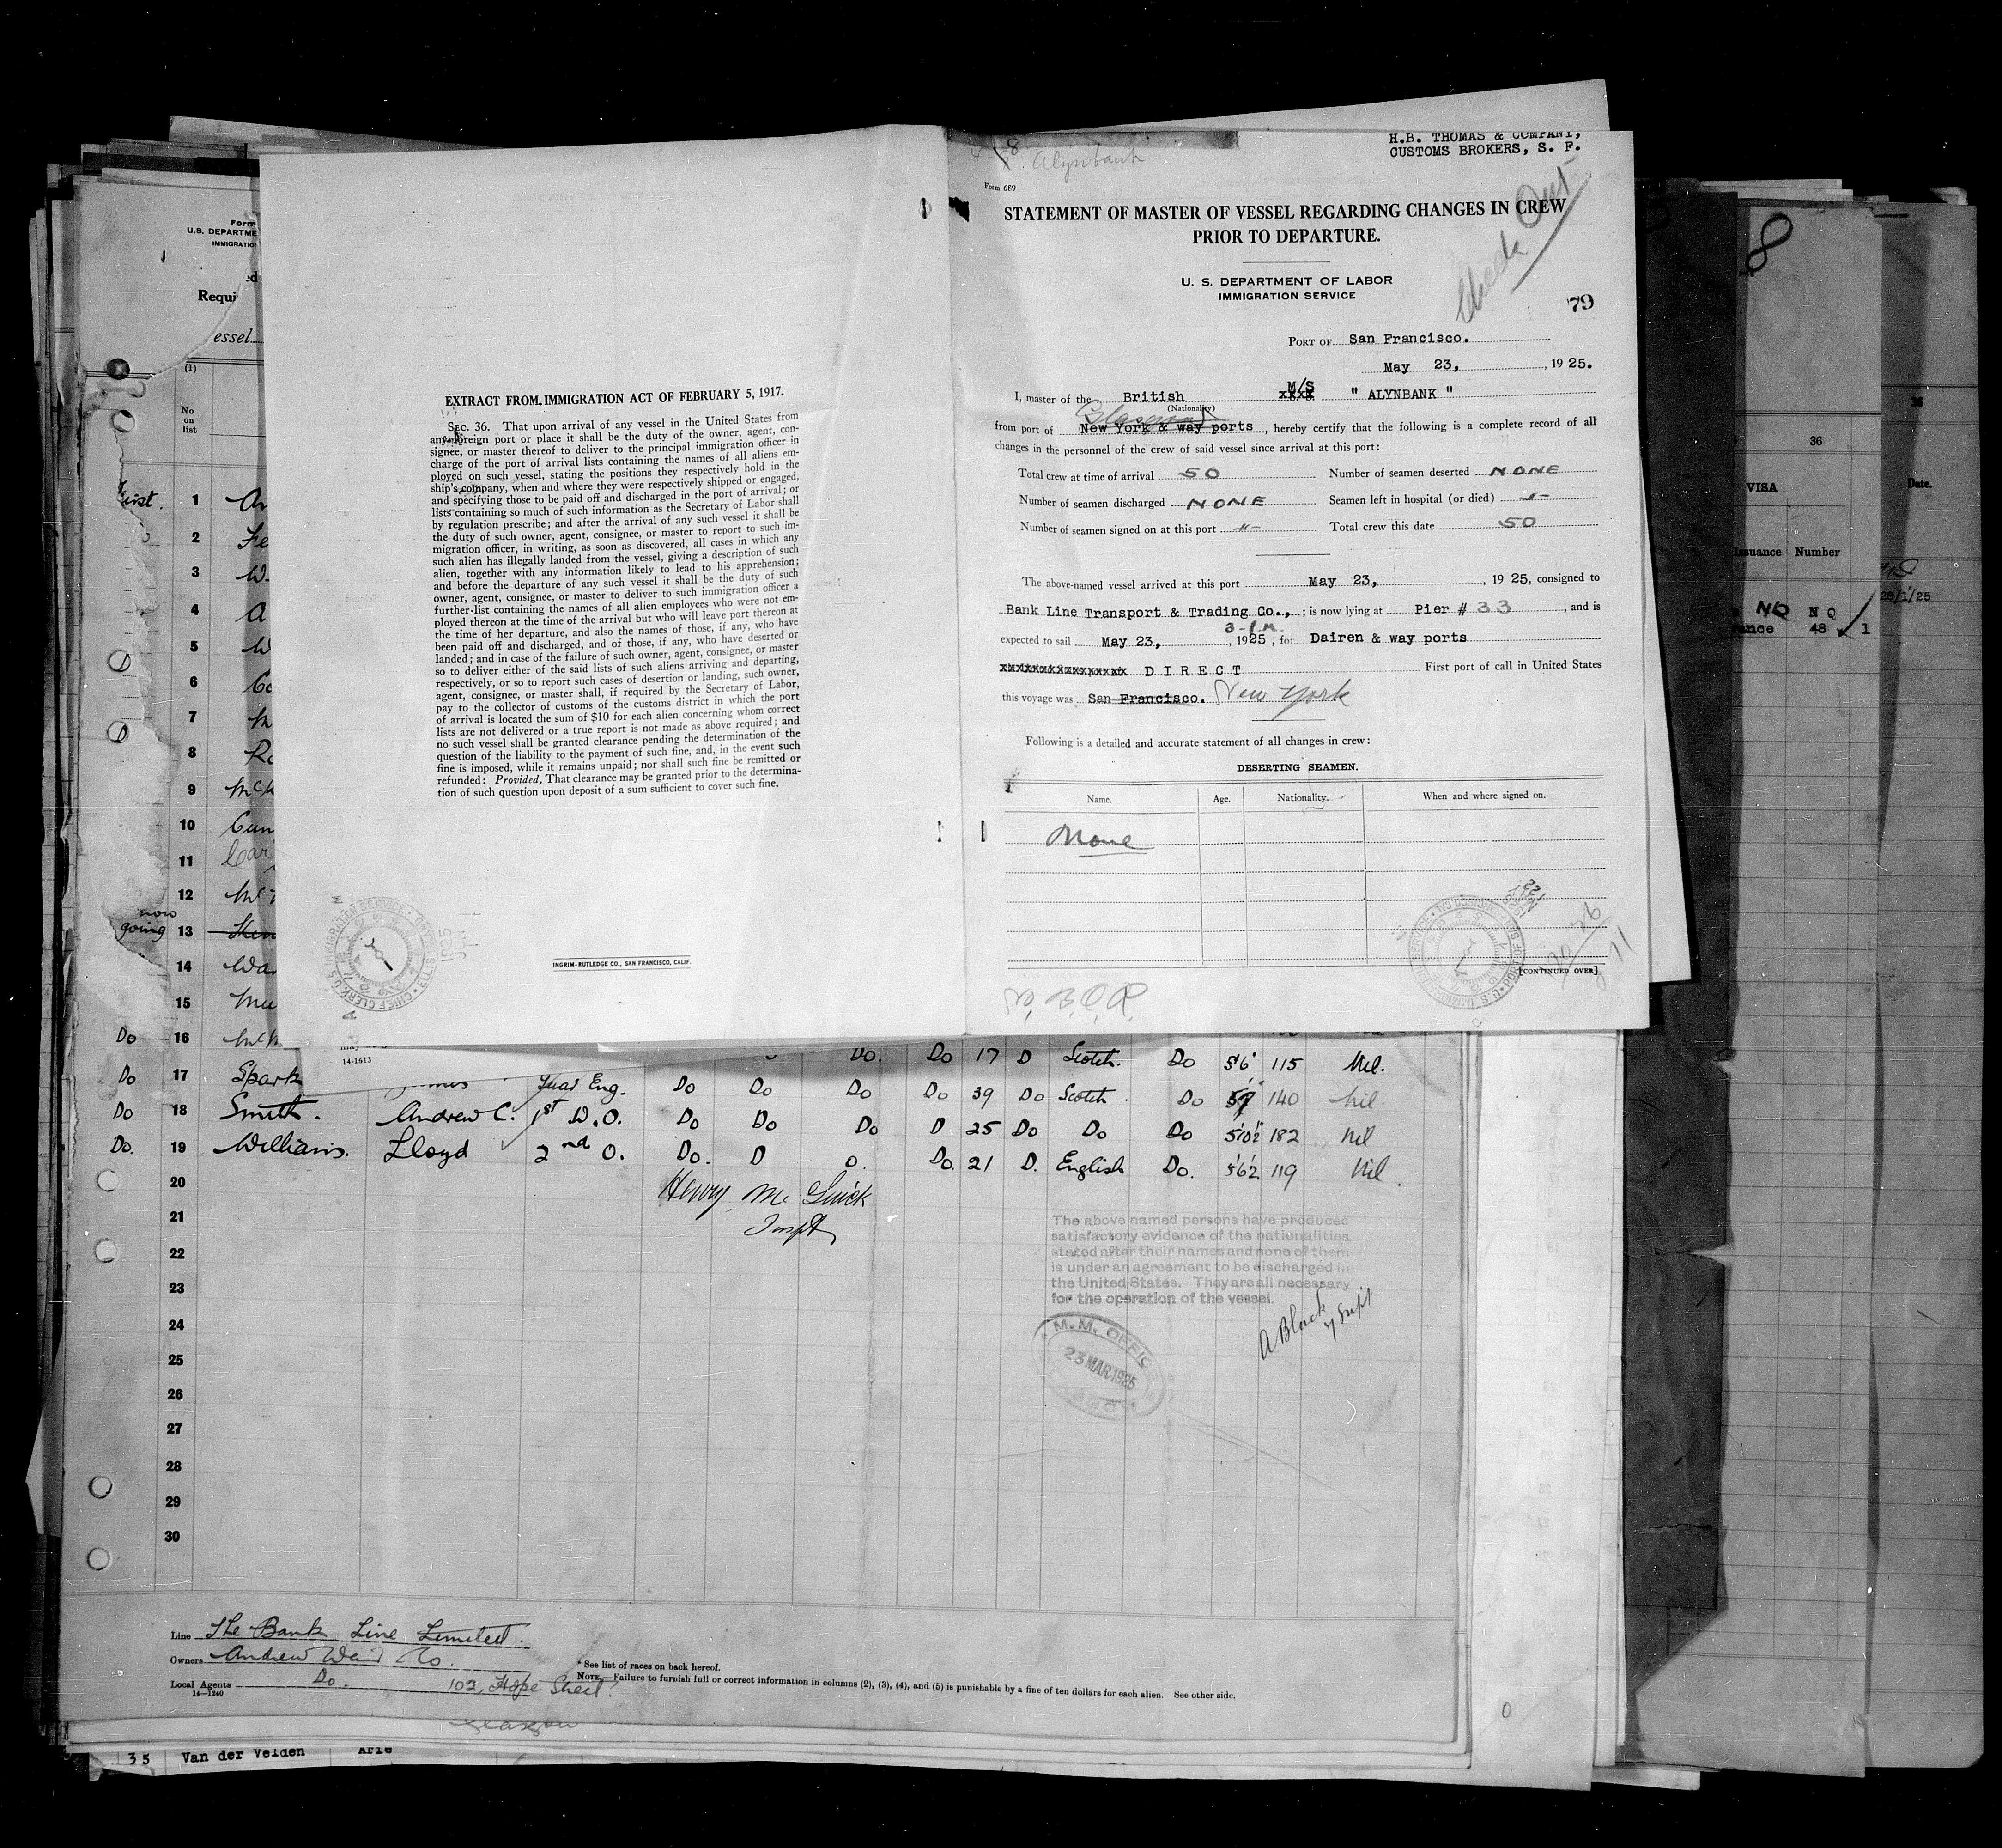 H.B. THOMAS & COMPANY,
CUSTOMS BROKERS, S. F.
8
Alynbank
Form 689
Check Out
STATEMENT OF MASTER OF VESSEL REGARDING CHANGES IN CREW
PRIOR TO DEPARTURE.
U. S. DEPARTMENT OF LABOR
IMMIGRATION SERVICE
79
PORT OF San Francisco.
May 23, , 1925.
I, master of the British M/S xxxx " ALYNBANK "
(Nationality)
Glasgow
from port of New York & way ports , hereby certify that the following is a complete record of all
changes in the personnel of the crew of said vessel since arrival at this port:
Total crew at time of arrival 50 Number of seamen deserted NONE
Number of seamen discharged NONE Seamen left in hospital (or died) -"-
Number of seamen signed on at this port -"- Total crew this date 50
The above-named vessel arrived at this port May 23, , 1925, consigned to
Bank Line Transport & Trading Co., ; is now lying at Pier # 33 , and is
3-P.M.
expected to sail May 23, , 1925, for Dairen & way ports
xxxxxxxxxxxxxxxxx D I R E C T First port of call in United States
this voyage was San Francisco. New York
Following is a detailed and accurate statement of all changes in crew:
DESERTING SEAMEN.
Name. Age. Nationality. When and where signed on.
None
[CONTINUED OVER]
EXTRACT FROM IMMIGRATION ACT OF FEBRUARY 5, 1917.
SEC. 36. That upon arrival of any vessel in the United States from
any foreign port or place it shall be the duty of the owner, agent, con-
signee, or master thereof to deliver to the principal immigration officer in
charge of the port of arrival lists containing the names of all aliens em-
ployed on such vessel, stating the positions they respectively hold in the
ship's company, when and where they were respectively shipped or engaged,
and specifying those to be paid off and discharged in the port of arrival; or
lists containing so much of such information as the Secretary of Labor shall
by regulation prescribe; and after the arrival of any such vessel it shall be
the duty of such owner, agent, consignee, or master to report to such im-
migration officer, in writing, as soon as discovered, all cases in which any
such alien has illegally landed from the vessel, giving a description of such
alien, together with any information likely to lead to his apprehension;
and before the departure of any such vessel it shall be the duty of such
owner, agent, consignee, or master to deliver to such immigration officer a
further list containing the names of all alien employees who were not em-
ployed thereon at the time of the arrival but who will leave port thereon at
the time of her departure, and also the names of those, if any, who have
been paid off and discharged, and of those, if any, who have deserted or
landed; and in case of the failure of such owner, agent, consignee, or master
so to deliver either of the said lists of such aliens arriving and departing,
respectively, or so to report such cases of desertion or landing, such owner,
agent, consignee, or master shall, if required by the Secretary of Labor,
pay to the collector of customs of the customs district in which the port
of arrival is located the sum of $10 for each alien concerning whom correct
lists are not delivered or a true report is not made as above required; and
no such vessel shall be granted clearance pending the determination of the
question of the liability to the payment of such fine, and, in the event such
fine is imposed, while it remains unpaid; nor shall such fine be remitted or
refunded: Provided, That clearance may be granted prior to the determina-
tion of such question upon deposit of a sum sufficient to cover such fine.
INGRIM-RUTLEDGE CO., SAN FRANCISCO, CALIF.
14-1613
Form
U.S. DEPARTME
IMMIGRATIO
Requi
essel
(1)
No
on
list
1
2 Fe
3 W
4 A
5 W
6 Co
7 M
8 Ro
9 McK
10 Cun
11 Car
12 Mc
now
going 13
14 Wa
15 Mu
Do 16 McK Do. Do 17 D Scotch. Do 5'6" 115 Nil.
Do 17 Spark Eng. Do Do Do Do 39 Do Scotch Do 140 nil.
Do 18 Smith. Andrew C. 1st W.O. Do Do Do D 25 Do Do Do 5'10½ 182 nil
Do. 19 Williams. Lloyd 2nd O. Do. D O. Do. 21 D. English Do. 5'6½ 119 Nil.
20
21
22
23
24
25
26
27
28
29
30
Henry Mc Guick
Inspt
The above named persons have produced
satisfactory evidence of the nationalities
stated after their names and none of them
is under an agreement to be discharged in
the United States. They are all necessary
for the operation of the vessel.
A Black
Supt
M.M. OFFICE
23 MAR 1925
Line The Bank Line Limited.
Owners Andrew Weir Co.
Local Agents Do. 102, Hope Street.
14-1240
Glasgow
* See list of races on back hereof.
NOTE.—Failure to furnish full or correct information in columns (2), (3), (4), and (5) is punishable by a fine of ten dollars for each alien. See other side.
35 Van der Velden Arie
8
36
VISA
Issuance Number
NQ NQ
48 1
36
Date.
28/1/25